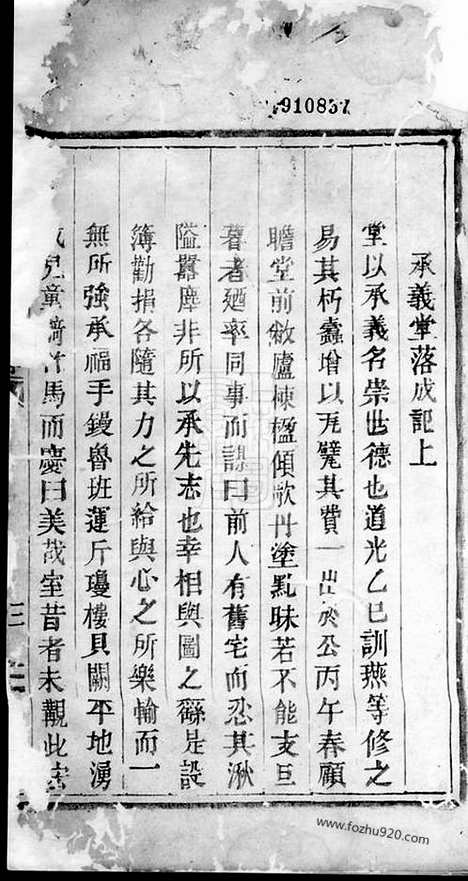 910837
承義堂落成記上
堂以承義名崇世德也道光乙巳訓燕等修之
易其朽蠹增以瓦甓其費一出於公丙午春顧
瞻堂前敝廬棟楹傾欹丹塗黝昧若不能支旦
暮者廼率同事而謀曰前人有舊宅而忍其湫
隘囂塵非所以承先志也幸相與圖之繇是設
簿勸捐各隨其力之所給與心之所樂輸而一
無所強承福手鏝魯班運斤瓊樓貝闕平地湧
兒童騎竹馬而慶曰美哉室昔者未觀此
三
www.fozhu920.com